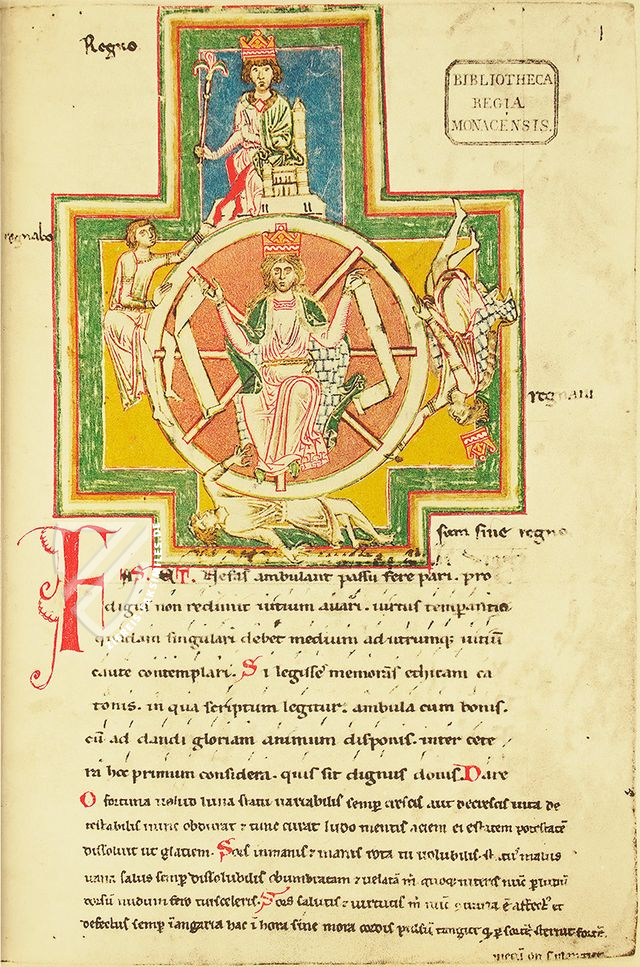 Regno
BIBLIOTHECA
REGIA
MONACENSIS.
regnabo
regnaui
sum sine regno
FAS ET Nefas ambulant passu fere pari. pro
digus non redimit uitium auari. uirtus temperantie
quadam singulari debet medium ad utrumq; uitiū
caute contemplari. Si legisse memoras ethicam ca
tonis. in qua scriptum legitur. ambula cum bonis.
cū ad dandi gloriam animum disponis. inter cete
ra hoc primum considera. quis sit dignus donis. Dare
O fortuna uelud luna statu uariabilis semp crescis aut decrescis uita de
testabilis nunc obdurat & tunc curat ludo mentis aciem egestatem potestatē
dissoluit ut glatiem. Sors inmanis & inanis rota tu uolubilis. statꝰ malus
uana salus semp dissolubilis obumbratam & uelatā m quoq; niteris nūc p ludū
dorsū nudum fero tui sceleris. Sors salutis & uirtutis m nunc ē affect et
defectus semp ī angaria hac ī hora sine mora cordis pulsū tangite q p sortē sternit fortē.
mecū om s plangite